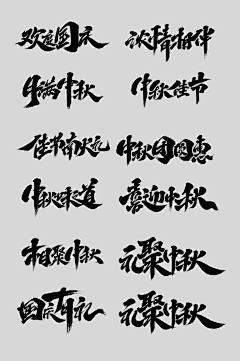 欢庭国庆 浓情相伴
月满中秋 中秋佳节
佳节有礼 中秋团圆惠
中秋味道 喜迎中秋
相聚中秋 礼聚中秋
国庆有礼 礼聚中秋